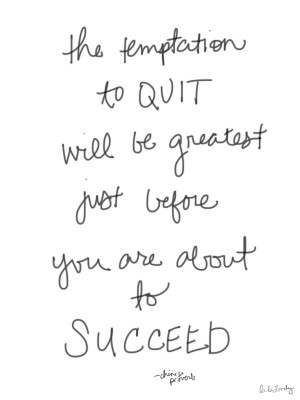 the temptation
to QUIT
will be greatest
just before
you are about
to
SUCCEED
~chinese
proverb